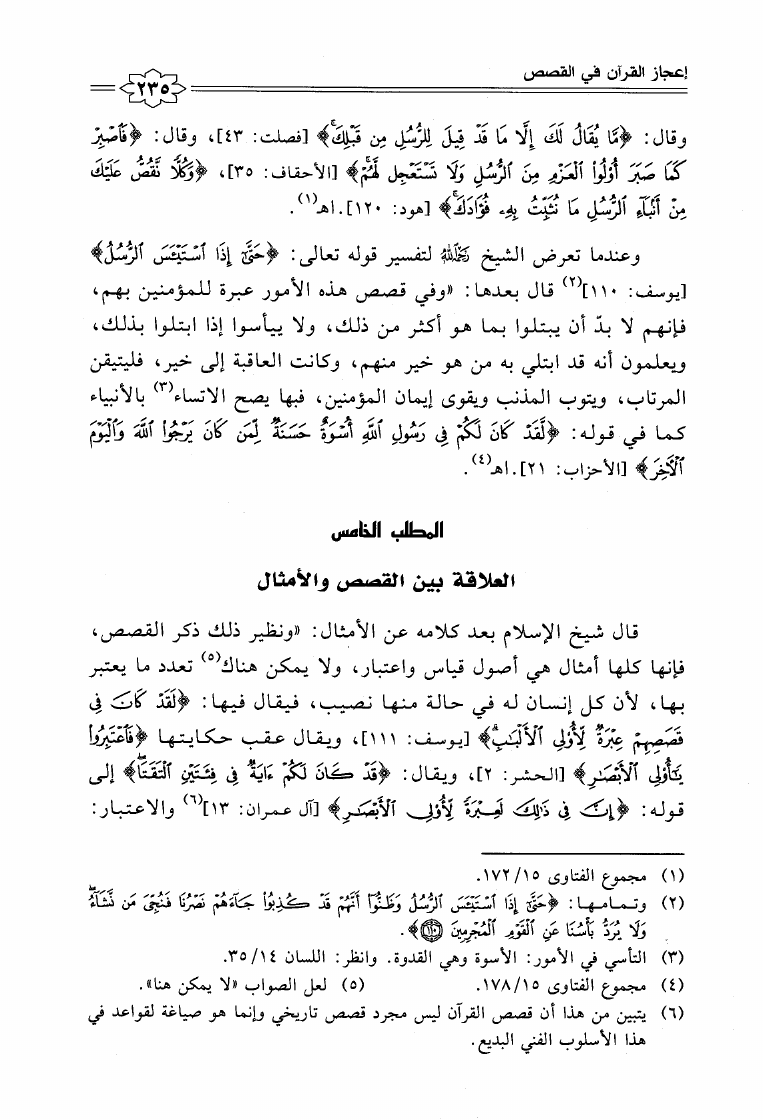 إعجاز القرآن في القصص
٢٣٥
وقال: ﴿مَّا يُقَالُ لَكَ إِلَّا مَا قَدْ قِيلَ لِلرُّسُلِ مِن قَبْلِكَ﴾ [فصلت: ٤٣]، وقال: ﴿فَٱصْبِرْ
كَمَا صَبَرَ أُوْلُواْ ٱلْعَزْمِ مِنَ ٱلرُّسُلِ وَلَا تَسْتَعْجِل لَّهُمْ﴾ [الأحقاف: ٣٥]، ﴿وَكُلًّا نَّقُصُّ عَلَيْكَ
مِنْ أَنۢبَآءِ ٱلرُّسُلِ مَا نُثَبِّتُ بِهِۦ فُؤَادَكَ﴾ [هود: ١٢٠].اهـ(١).
وعندما تعرض الشيخ رَحِمَهُ اللهُ لتفسير قوله تعالى: ﴿حَتَّىٰٓ إِذَا ٱسْتَيْـَٔسَ ٱلرُّسُلُ﴾
[يوسف: ١١٠](٢) قال بعدها: «وفي قصص هذه الأمور عبرة للمؤمنين بهم،
فإنهم لا بدّ أن يبتلوا بما هو أكثر من ذلك، ولا ييأسوا إذا ابتلوا بذلك،
ويعلمون أنه قد ابتلي به من هو خير منهم، وكانت العاقبة إلى خير، فليتيقن
المرتاب، ويتوب المذنب ويقوى إيمان المؤمنين، فبها يصح الاتساء(٣) بالأنبياء
كما في قوله: ﴿لَّقَدْ كَانَ لَكُمْ فِى رَسُولِ ٱللَّهِ أُسْوَةٌ حَسَنَةٌ لِّمَن كَانَ يَرْجُواْ ٱللَّهَ وَٱلْيَوْمَ
ٱلْءَاخِرَ﴾ [الأحزاب: ٢١].اهـ(٤).
المطلب الخامس
العلاقة بين القصص والأمثال
قال شيخ الإسلام بعد كلامه عن الأمثال: «ونظير ذلك ذكر القصص،
فإنها كلها أمثال هي أصول قياس واعتبار، ولا يمكن هناك(٥) تعدد ما يعتبر
بها، لأن كل إنسان له في حالة منها نصيب، فيقال فيها: ﴿لَقَدْ كَانَ فِى
قَصَصِهِمْ عِبْرَةٌ لِّأُوْلِى ٱلْأَلْبَٰبِ﴾ [يوسف: ١١١]، ويقال عقب حكايتها ﴿فَٱعْتَبِرُواْ
يَٰٓأُوْلِى ٱلْأَبْصَٰرِ﴾ [الحشر: ٢]، ويقال: ﴿قَدْ كَانَ لَكُمْ ءَايَةٌ فِى فِئَتَيْنِ ٱلْتَقَتَا﴾ إلى
قوله: ﴿إِنَّ فِى ذَٰلِكَ لَعِبْرَةً لِّأُوْلِى ٱلْأَبْصَٰرِ﴾ [آل عمران: ١٣](٦) والاعتبار:
(١) مجموع الفتاوى ١٧٢/١٥.
(٢) وتمامها: ﴿حَتَّىٰٓ إِذَا ٱسْتَيْـَٔسَ ٱلرُّسُلُ وَظَنُّوٓاْ أَنَّهُمْ قَدْ كُذِبُواْ جَآءَهُمْ نَصْرُنَا فَنُجِّىَ مَن نَّشَآءُ
وَلَا يُرَدُّ بَأْسُنَا عَنِ ٱلْقَوْمِ ٱلْمُجْرِمِينَ ١١٠﴾.
(٣) التأسي في الأمور: الأسوة وهي القدوة. وانظر: اللسان ٣٥/١٤.
(٤) مجموع الفتاوى ١٧٨/١٥. (٥) لعل الصواب «لا يمكن هنا».
(٦) يتبين من هذا أن قصص القرآن ليس مجرد قصص تاريخي وإنما هو صياغة لقواعد في
هذا الأسلوب الفني البديع.